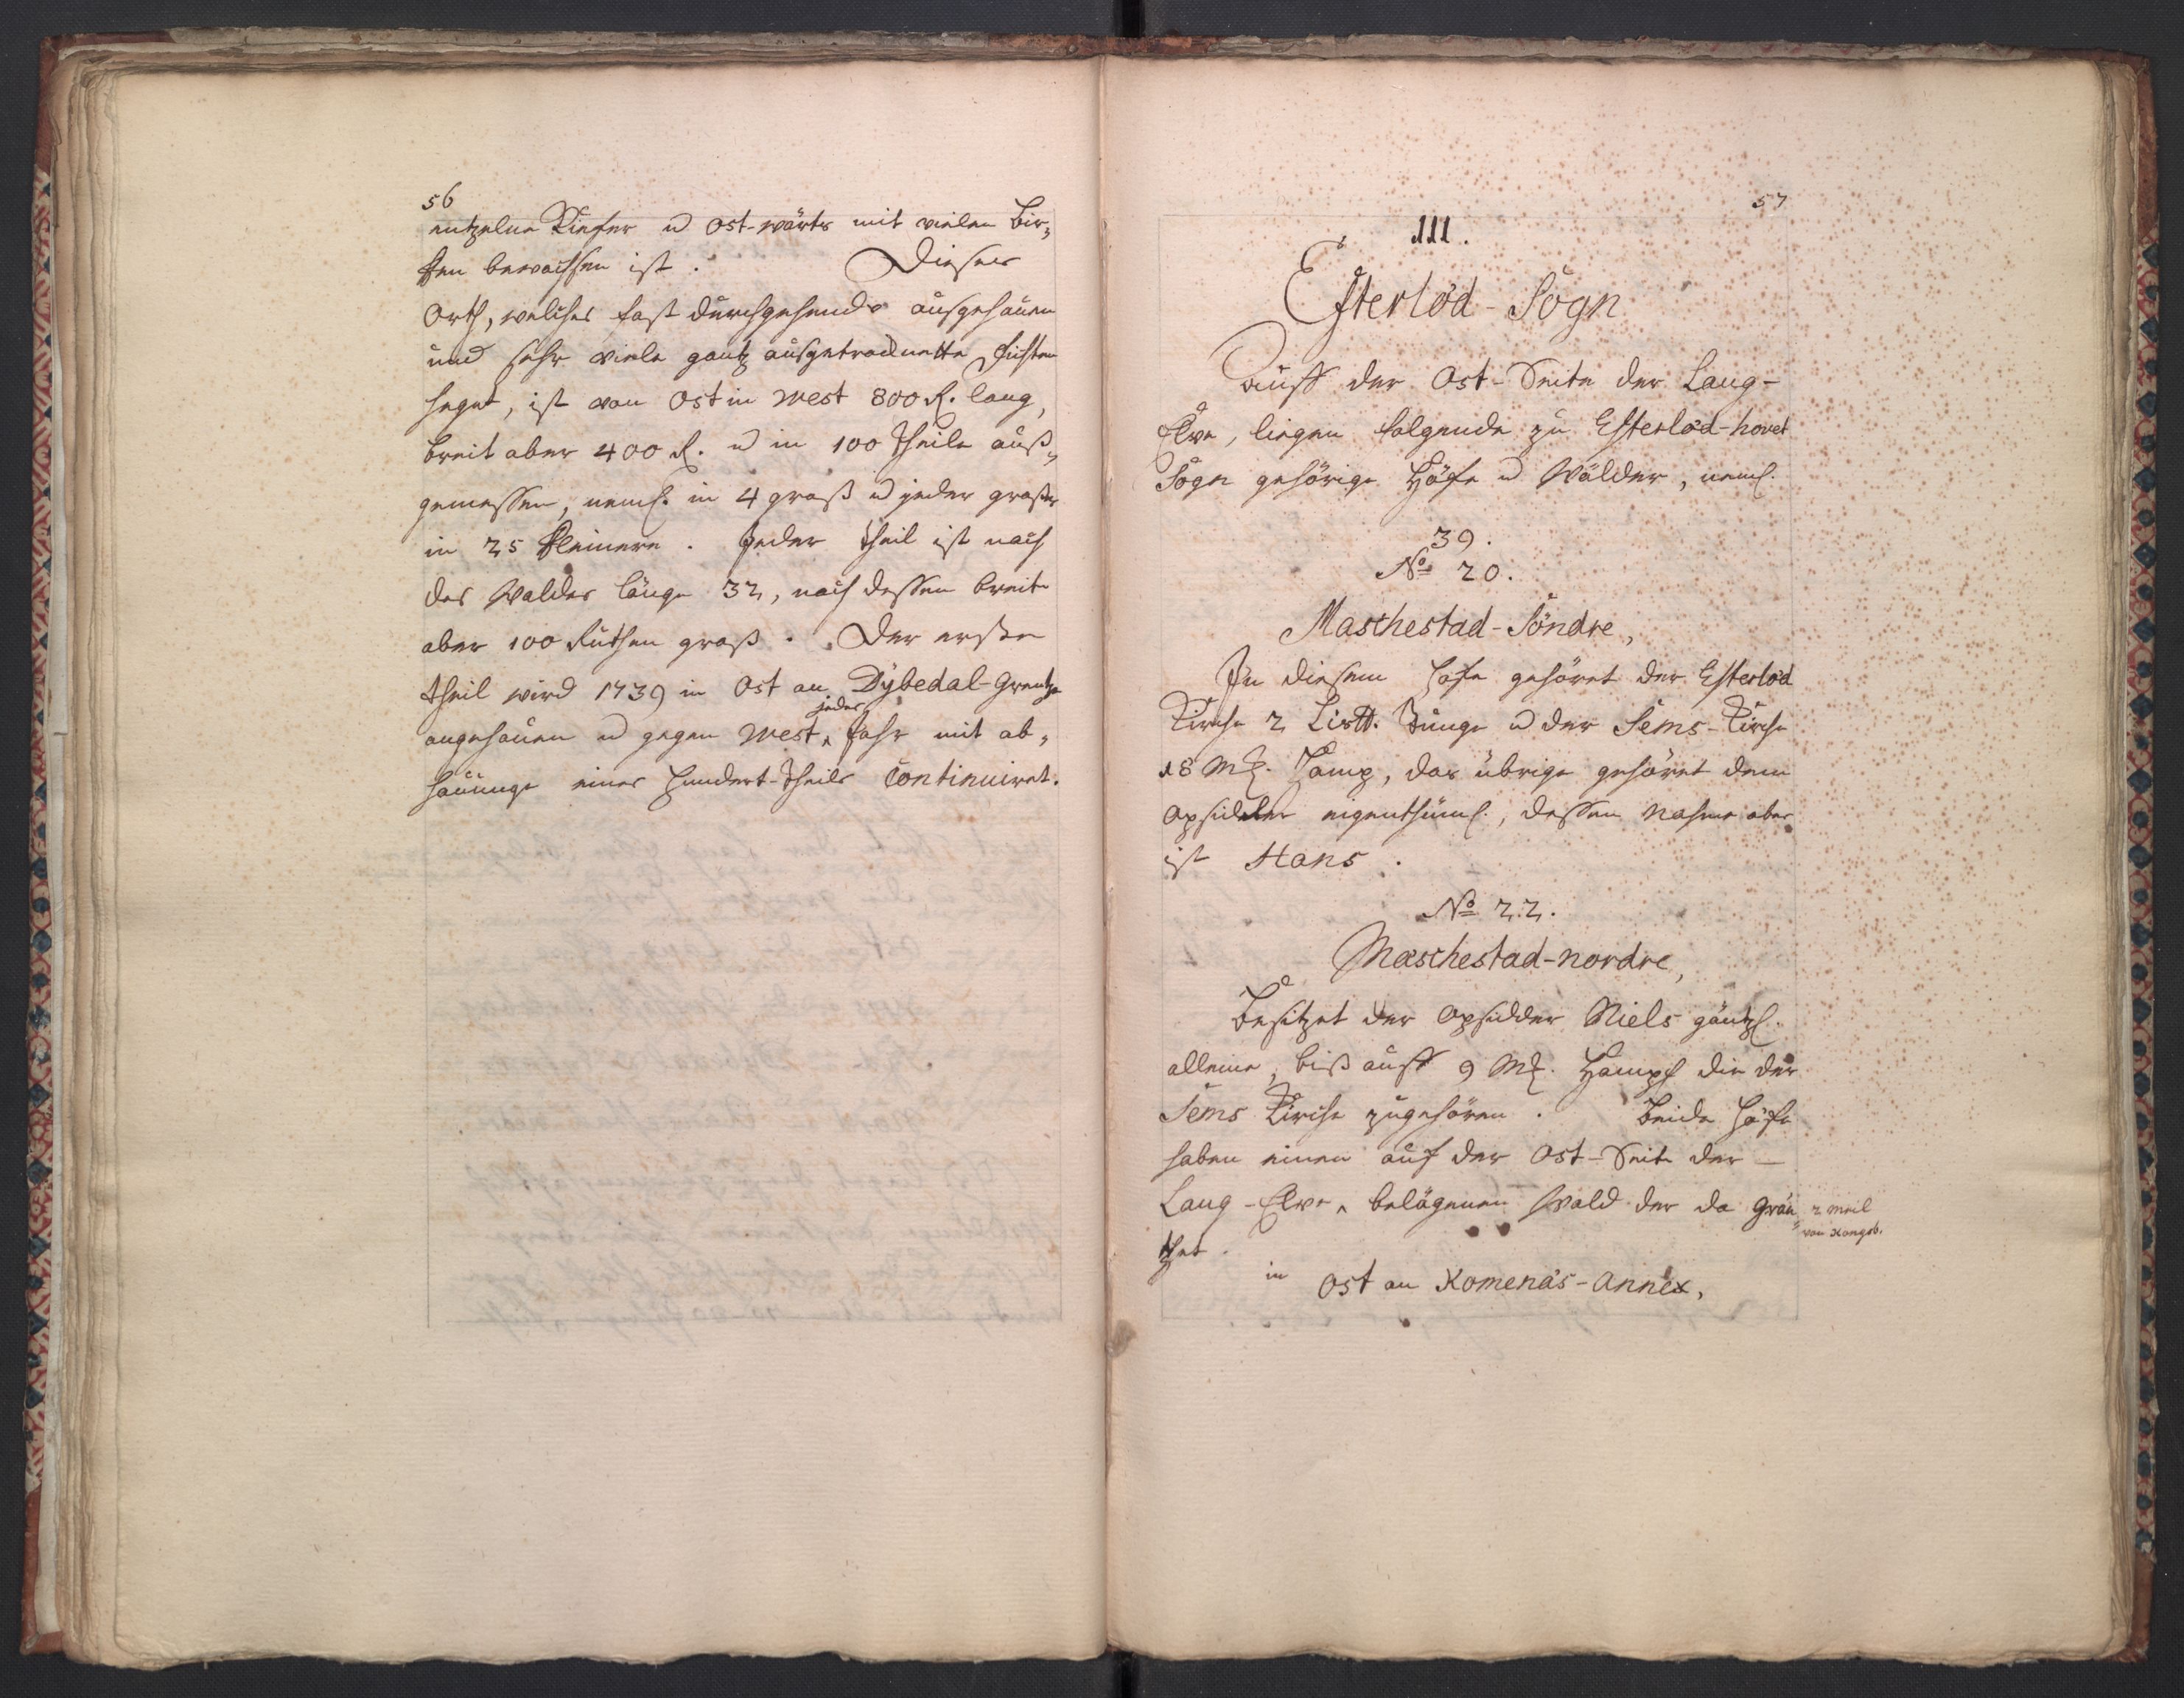 56
entzelne Kiefer u Ost-wärts mit vielen Bir„
ken bewachsen ist. Dieser
Orth, welcher fast durchgehends ausgehauen
und sehr viele gantz ausgetrocknette Fichten
heget, ist von Ost in West 800 R. lang,
breit aber 400 R. u in 100 Theile auß„
gemessen, neml. in 4 groß u jeder großer
in 25 kleinere. Jeder Theil ist nach
des Waldes länge 32, nach dessen breite
aber 100 Ruthen groß. Der erste
Theil wird 1739 in Ost an Dÿbedal-Grentze
jedes
angehauen u gegen West, Jahr mit ab„
hauunge eines Hundert-Theils Continuiret.
57
III.
Efterlöd-Sogn
Auff der Ost-Seite der Laug-
Elve, liegen folgende zu Efterlöd-hovet
Sogn gehörige Höfe u Wälder, neml.
39.
No 20.
Maschestad-Söndre,
Zu diesem Hofe gehöret der Efterlöd
Kirche 2 Lis℔. Tunge u der Sems-Kirche
18 Mk. Hamp, das übrige gehöret dem
Opsidder eigenthüml., dessen Nahme aber
ist Hans.
No 22.
Maschestad-nordre,
Besitzet der Opsidder Niels gäntzl.
alleine, biß auff 9 Mk. Hampf die der
Sems Kirche zugehören. Beide Höfe
haben einen auf der Ost-Seite der –
Laug-Elve belägenen Wald der da Grän„
2 Meil
von Kongsb.
tzet
in Ost an Komenäs-Annex,